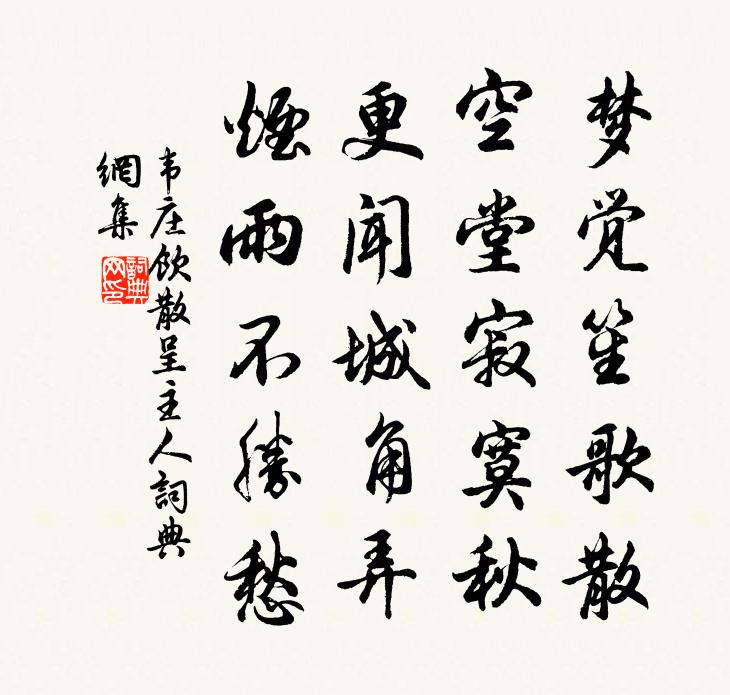 梦觉笙歌散
空堂寂寞秋
更闻城角弄
煙雨不勝愁
韦庄飲散呈主人詞典
網集
詞典
网印